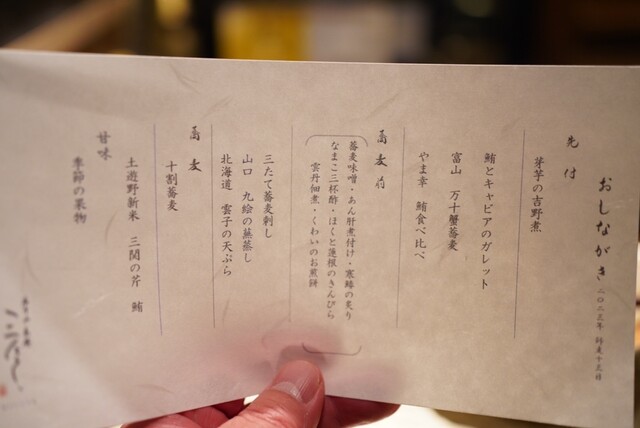 おしながき
二〇二三年 師走十三日
先付
芽芋の吉野煮
鮪とキャビアのガレット
富山 万十蟹蕎麦
やま幸 鮪食べ比べ
蕎麦前
蕎麦味噌・あん肝煮付け・寒鰆の炙り
なまこ三杯酢・ほくと蓮根のきんぴら
雲丹佃煮・くわいのお煎餅
三たて蕎麦刺し
山口 九絵の蕪蒸し
北海道 雲子の天ぷら
蕎麦
十割蕎麦
土遊野新米 三関の芹 鮪
甘味
季節の果物